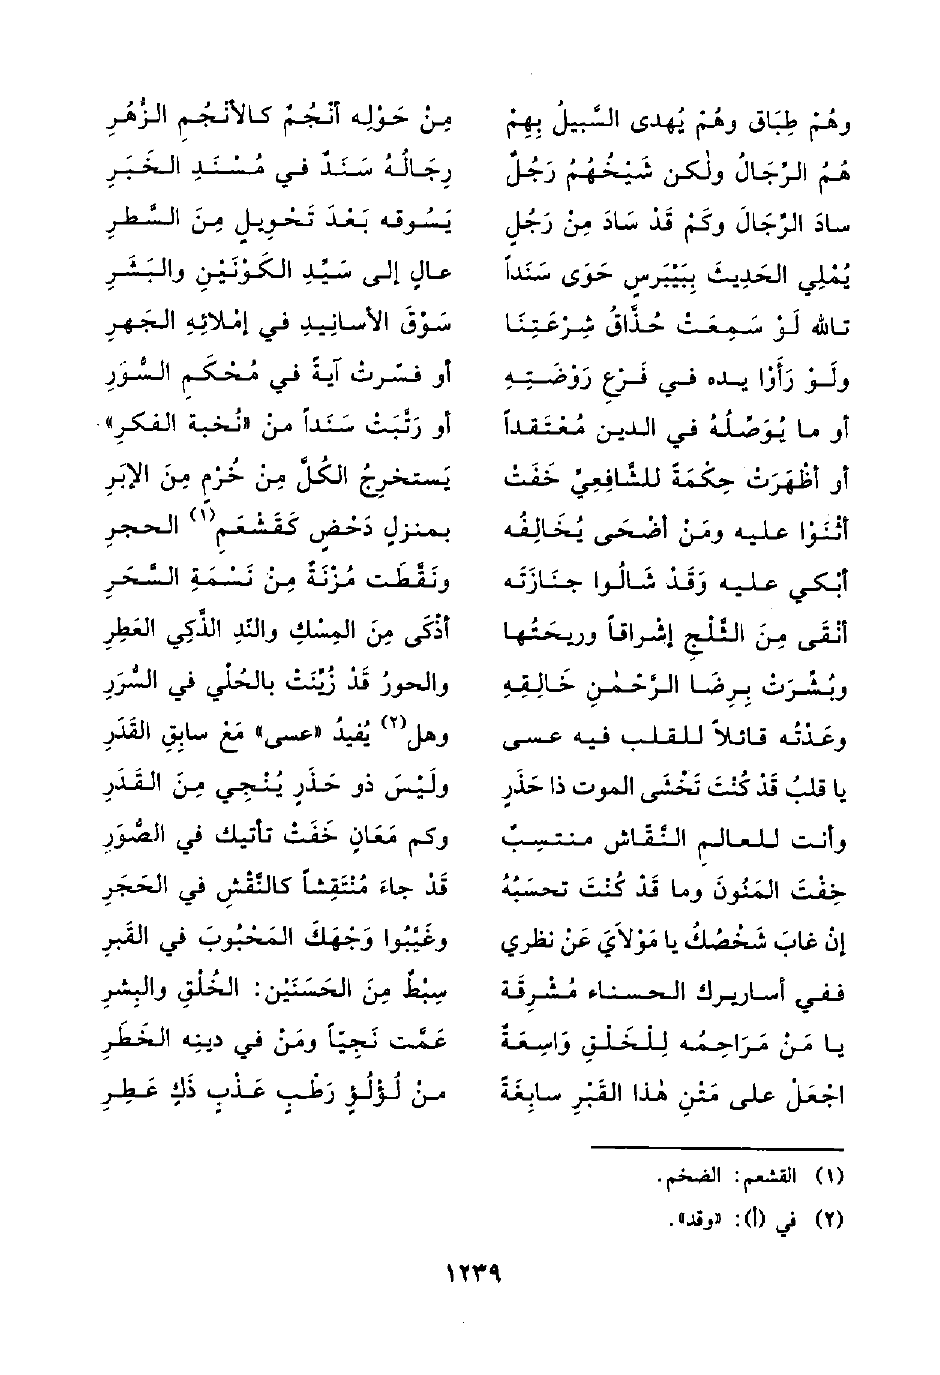 وهُمْ طِبَاق وهُمْ يُهدى السَّبيلُ بِهِمْ مِنْ حَوْلِه أنْجُمٌ كالأنْجُمِ الزُّهْرِ
هُمُ الرِّجَالُ ولَكن شَيْخُهُمْ رَجُلٌ رِجَالُهُ سَنَدٌ في مُسْنَدِ الخَبَرِ
سادَ الرِّجَالَ وكَمْ قَدْ سَادَ مِنْ رَجُلٍ يَسُوقه بَعْدَ تَحْوِيلٍ مِنَ السَّطْرِ
يُمْلِي الحَدِيثَ بِبَيْبَرسٍ حَوَى سَنَداً عالٍ إلى سَيِّدِ الكَوْنَيْنِ والبَشَرِ
تالله لَوْ سَمِعَتْ حُذَّاقُ شِرْعَتِنَا سَوْقَ الأسانِيدِ في إمْلائِهِ الجَهِرِ
ولَوْ رَأَوْا يده في فَرْعِ رَوْضَتِهِ أو فسَّرتْ آيةً في مُحْكَمِ السُّوَرِ
أو ما يُؤَصِّلُهُ في الدين مُعْتَقِداً أو رَتَّبَتْ سَنَداً من «نُخبة الفكر»
أو أظْهَرَتْ حِكْمَةً للشَّافِعِيِّ خَفَتْ يَستخرِجُ الكُلَّ مِنْ خُرْمٍ مِنَ الإبَرِ
أثْنَوْا عليه ومَنْ أضْحَى يُخَالِفُه بمنزلٍ دَحْضٍ كَقَشْعَمِ(١) الحجرِ
أبْكي عليه وَقَدْ شَالُوا جنَازَتَه ونَقَّطَت مُزْنَةٌ مِنْ نَسْمَةِ السَّحَرِ
أنْقَى مِنَ الثَّلْجِ إشراقاً ورِيحَتُها أذْكَى مِنَ المِسْكِ والنَّدِ الذَّكِي العَطِرِ
وبُشِّرَتْ بِرِضَا الرَّحْمٰنِ خَالِقِهِ والحورُ قَدْ زُيِّنَتْ بالحُلْي في السُّرَرِ
وعَدْتُه قائلاً للقلب فيه عسى وهل(٢) يُفِيدُ «عسى» مَعْ سابِقِ القَدَرِ
يا قلبُ قَدْ كُنْتَ تَخْشَى الموت ذا حَذَرٍ ولَيْسَ ذو حَذَرٍ يُنْجِي مِنَ القَدَرِ
وأنت للعالم النَّقَّاشِ منتسِبٌ وكم مَعَانٍ خَفَتْ تأتيك في الصُّوَرِ
خِفْتَ المَنُونَ وما قَدْ كُنْتَ تحسَبُهُ قَدْ جاءَ مُنْتَقِشاً كالنَّقْشِ في الحَجَرِ
إنْ غابَ شَخصُكَ يا مَوْلاَيَ عَنْ نظري وغَيَّبُوا وَجْهَكَ المَحْبُوبَ في القَبرِ
ففي أسارِيرك الحسناء مُشرِقَةً سِبْطٌ مِنَ الحَسَنَيْنِ: الخُلْقِ والبِشرِ
يا مَنْ مَرَاحِمُه لِلْخَلْقِ وَاسِعَةٌ عَمَّتْ نَجِيّاً ومَنْ في دينِه الخَطَرِ
اجْعَلْ على مَتْنِ هٰذا القَبْرِ سابِغَةً مِنْ لُؤْلُؤٍ رَطْبٍ عَذْبٍ ذَكٍ عَطِرِ
(١) القشعم: الضخم.
(٢) في (أ): «وقد».
١٢٣٩